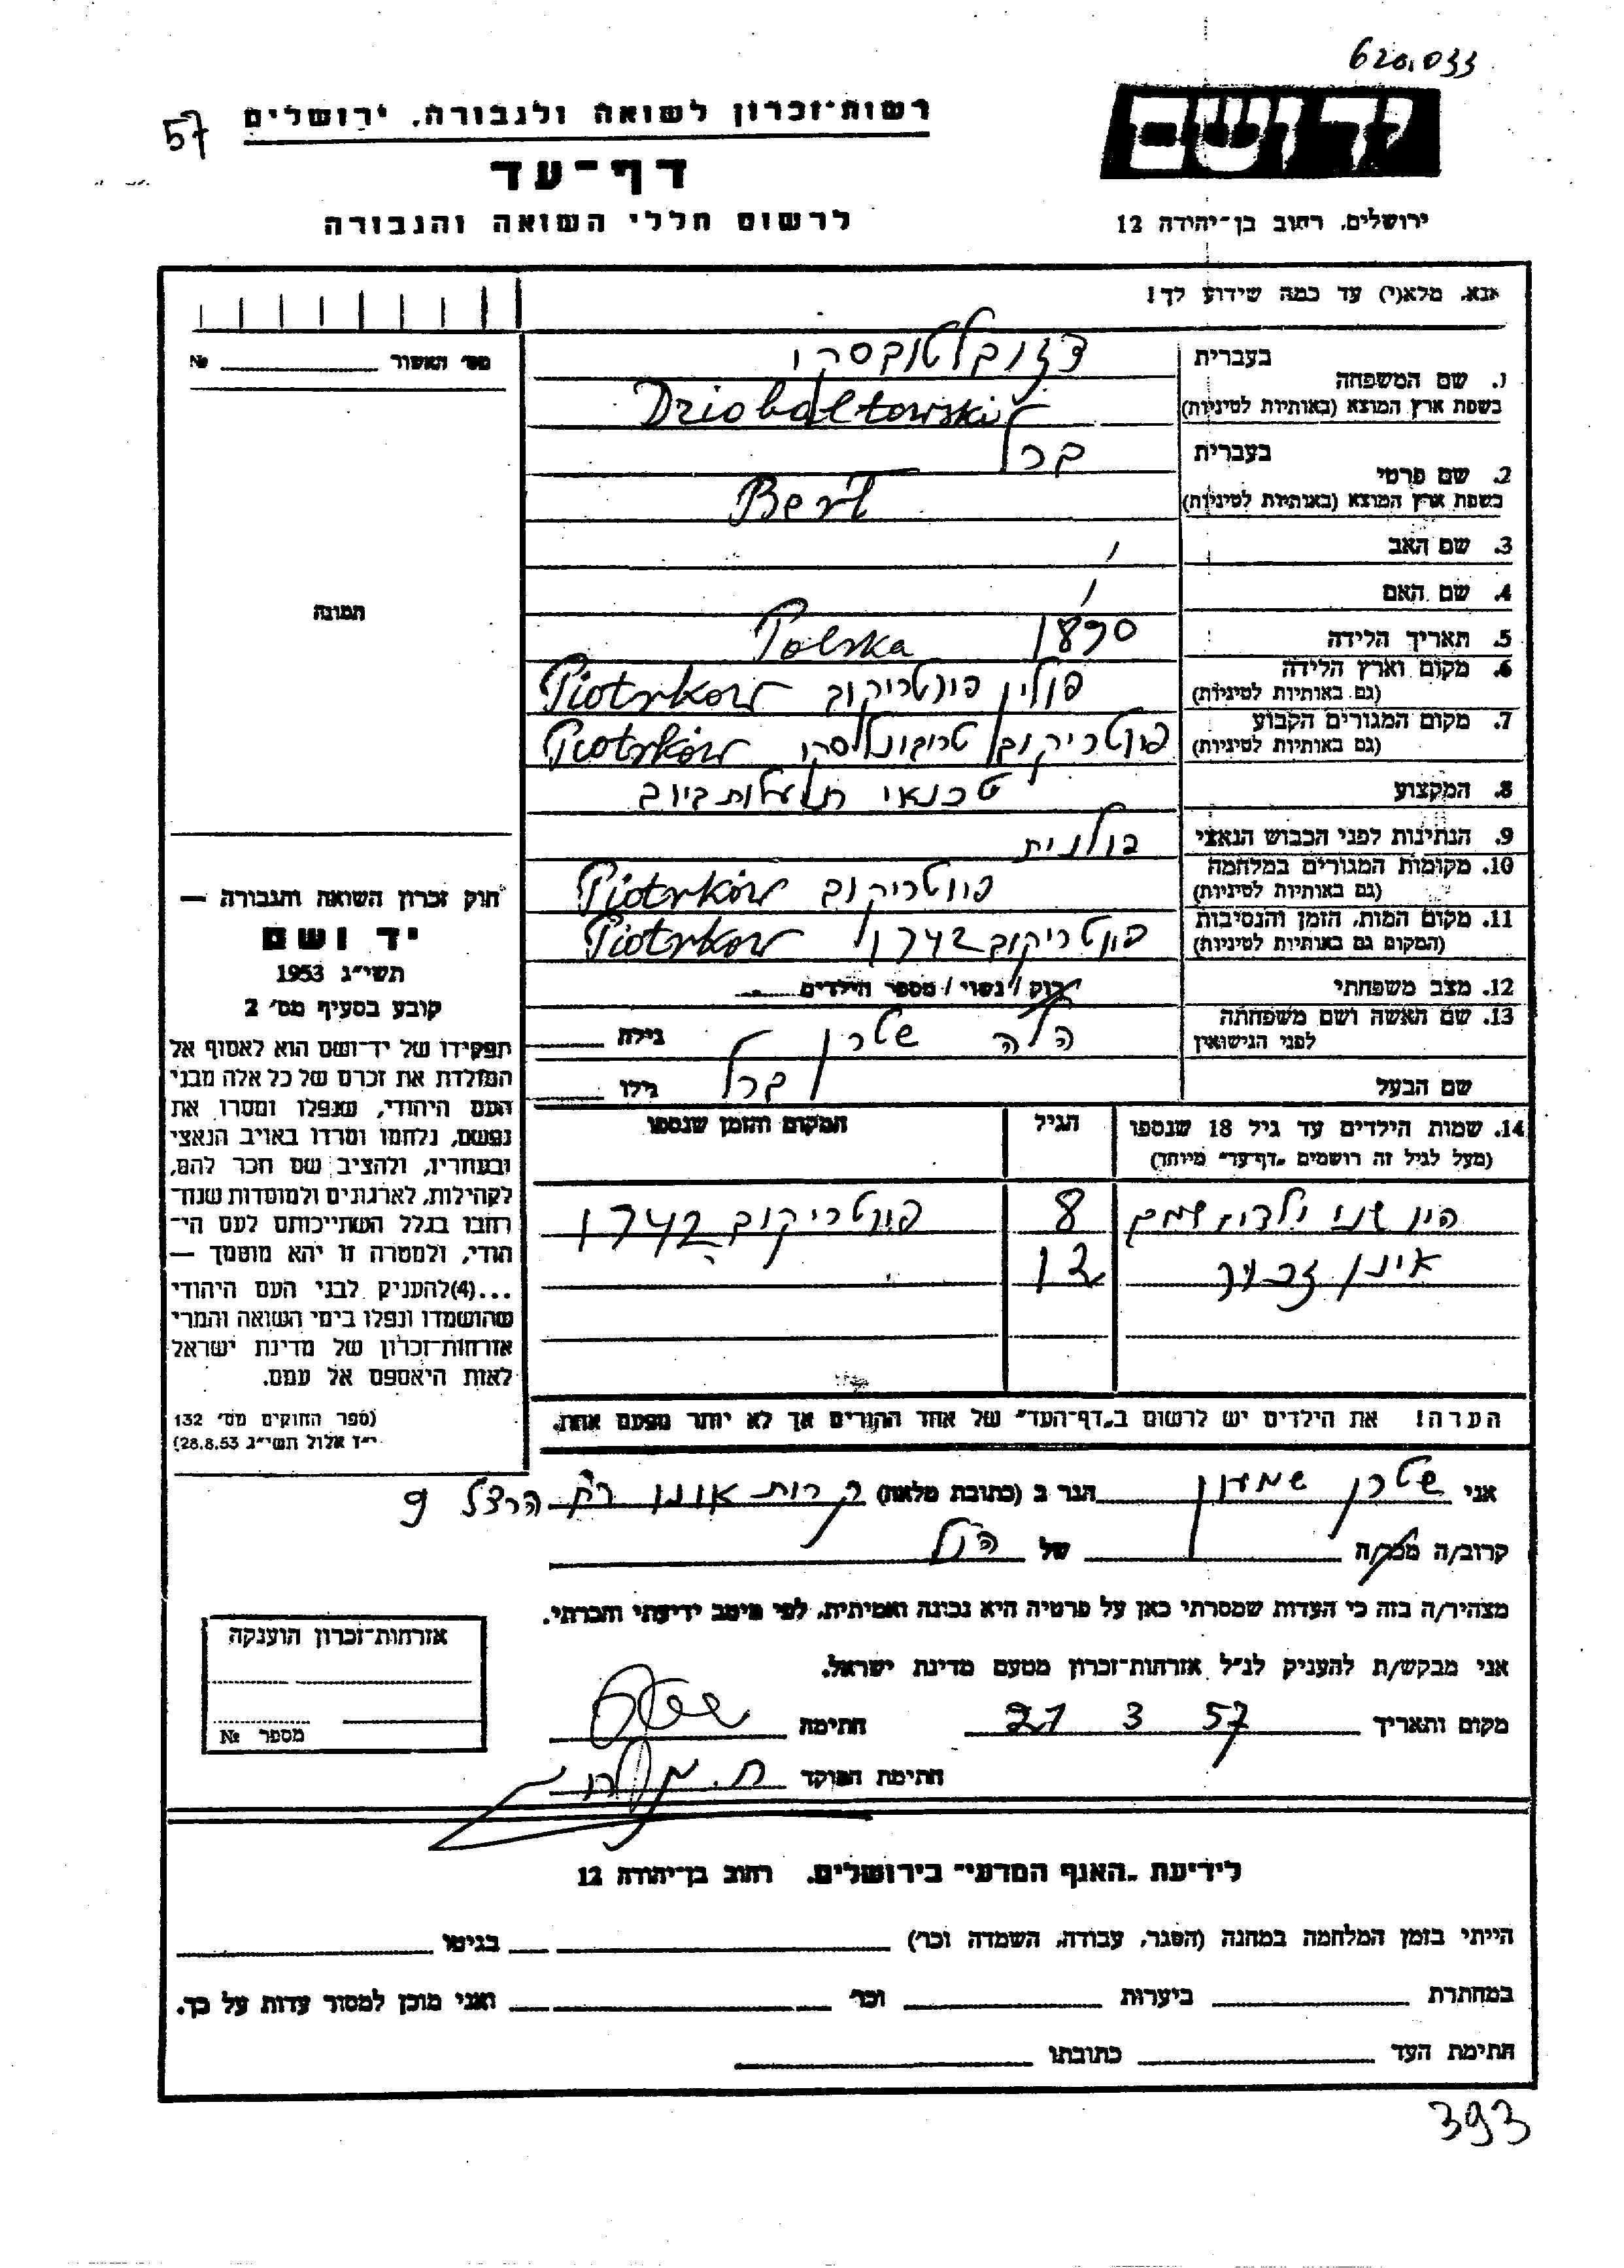 620.033
57
רשות־זכרון לשואה ולגבורה. ירושלים
דף־עד
לרשום חללי השואה והגבורה
יד ושם
ירושלים. רחוב בן־יהודה 12
אנא, מלא(י) עד כמה שידוע לך!
מס׳ האשור № 
1. שם המשפחה
בעברית
בשפת ארץ המוצא (באותיות לטיניות)
Dziobaltowski
2. שם פרטי
בעברית ברל
בשפת ארץ המוצא (באותיות לטיניות) Berl
3. שם האב /
4. שם האם /
5. תאריך הלידה 1890 Polska
6. מקום וארץ הלידה פולין פיוטריקוב Piotrkow
(גם באותיות לטיניות)
7. מקום המגורים הקבוע פיוטריקוב טריבונלסקי Piotrków
(גם באותיות לטיניות)
8. המקצוע טכנאי תעלות ביוב
9. הנתינות לפני הכבוש הנאצי פולנית
10. מקומות המגורים במלחמה פיוטריקוב Piotrków
(גם באותיות לטיניות)
11. מקום המות, הזמן והנסיבות פיוטריקוב 1942 Piotrkow
(המקום גם באותיות לטיניות)
12. מצב משפחתי רוק / נשוי / מספר הילדים
13. שם האשה ושם משפחתה הלה שטרן גילה
לפני הנישואין
שם הבעל ברל גילו
תמונה
חוק זכרון השואה והגבורה —
יד ושם
תשי״ג 1953
קובע בסעיף מס׳ 2
תפקידו של יד־ושם הוא לאסוף אל
המולדת את זכרם של כל אלה מבני
העם היהודי, שנפלו ומסרו את
נפשם, נלחמו ומרדו באויב הנאצי
ובעוזריו, ולהציב שם וזכר להם,
לקהילות, לארגונים ולמוסדות שנח־
רחבו בגלל השתייכותם לעם הי־
הודי, ולמטרה זו יהא מוסמך —
...(4)להעניק לבני העם היהודי
שהושמדו ונפלו בימי השואה והמרי
אזרחות־זכרון של מדינת ישראל
לאות היאספם אל עמם.
(ספר החוקים מס׳ 132
י״ז אלול תשי״ג 28.8.53)
14. שמות הילדים עד גיל 18 שנספו הגיל המקום והזמן שנספו
(מעל לגיל זה רושמים „דף־עד״ מיוחד)
היו שני ילדות שמם 8 פיוטריקוב 1942
אינן זכור 12
הערה! את הילדים יש לרשום ב„דף־העד״ של אחד ההורים אך לא יותר מפעם אחת.
אני שטרן שמעון הגר ב (כתובת מלאה) קרית אונו רח הרצל 9
קרוב/ה מכר/ה של הנ״ל
מצהיר/ה בזה כי העדות שמסרתי כאן על פרטיה היא נכונה ואמיתית, לפי מיטב ידיעתי והכרתי.
אני מבקש/ת להעניק לנ״ל אזרחות־זכרון מטעם מדינת ישראל.
מקום ותאריך 21 3 57 חתימה
חתימת הפוקד
אזרחות־זכרון הוענקה
מספר №
לידיעת „האגף המדעי״ בירושלים. רחוב בן־יהודה 12
הייתי בזמן המלחמה במחנה (הסגר, עבודה, השמדה וכו׳) בגיטו
במחתרת ביערות וכו׳ ואני מוכן למסור עדות על כך.
חתימת העד כתובתו
393